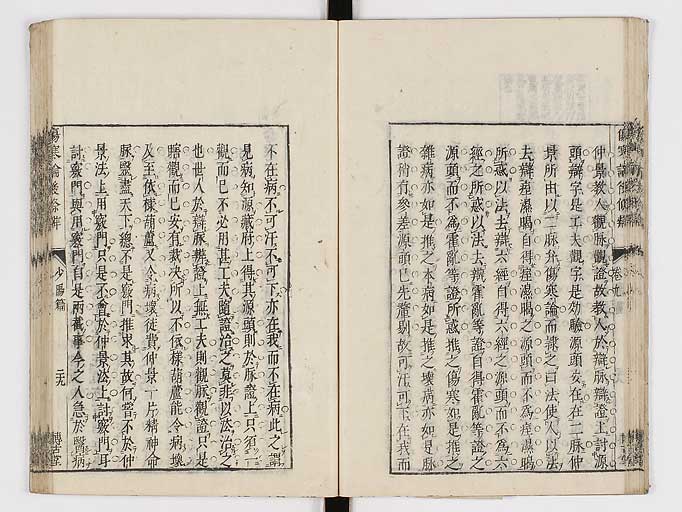 仲景教人觀脉觀證故教人於辯脉辯證上討源
頭辯字是工夫觀字是効驗源頭安在在二脉仲
景所由以二脉弁傷寒論而隷之曰法使人以法
去辯痓濕暍自得痓濕暍之源頭而不爲痓濕暍
所惑以法去辯六經自得六經之源頭而不爲六
經之所惑以法去辯霍亂等證自得霍亂等證之
源頭而不爲霍亂等證所惑推之傷寒如是推之
雜病亦如是推之本病如是推之壞病亦如是脉
證術有參差源頭已先灌剔故可汗可下在我而
不在病不可汗不可下亦在我而不在病此之謂
見病知源藏府上得其源頭則於脉證上只須一
觀而已不必用甚工夫隨證治之莫非以法治之
也世人於辯脉辯證上無工夫則觀脉觀證只是
瞎觀而已安有裁决所以不依樣葫蘆能令病壞
及至依樣葫蘆又令病壞徒費仲景一片精神命
脉毉盡天下總不是竅門推求其故何嘗不於仲
景法上用竅門只是不會於仲景法上討竅門耳
討竅門與用竅門自是兩截事今之人急於醫病
傷寒論後條辯
少陽篇
二九
博古堂
卷九